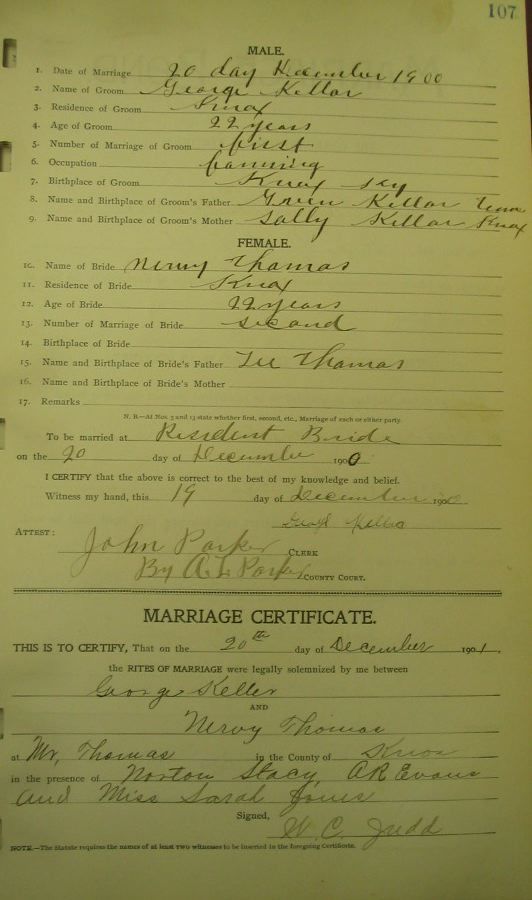 107
MALE.
1. Date of Marriage 20 day December 1900
2. Name of Groom George Kellar
3. Residence of Groom Knox
4. Age of Groom 22 years
5. Number of Marriage of Groom first
6. Occupation farming
7. Birthplace of Groom Knox Ky
8. Name and Birthplace of Groom's Father Green Kellar Tenn
9. Name and Birthplace of Groom's Mother Sally Kellar Knox
FEMALE.
10. Name of Bride Nervy Thomas
11. Residence of Bride Knox
12. Age of Bride 22 years
13. Number of Marriage of Bride second
14. Birthplace of Bride
15. Name and Birthplace of Bride's Father Lee Thomas
16. Name and Birthplace of Bride's Mother
17. Remarks
N. B.—At Nos. 5 and 13 state whether first, second, etc., Marriage of each or either party.
To be married at Resident Bride
on the 20 day of December 1900
I CERTIFY that the above is correct to the best of my knowledge and belief.
Witness my hand, this 19 day of December 1900
ATTEST:
John Parker CLERK
By A L Parker COUNTY COURT.
MARRIAGE CERTIFICATE.
THIS IS TO CERTIFY, That on the 20th day of December 1901.
the RITES OF MARRIAGE were legally solemnized by me between
George Keller
AND
Nervy Thomas
at Mr, Thomas in the County of Knox
in the presence of Norton Stacy, A R Evans
and Miss Sarah Jones
Signed,
W. C. Judd
NOTE.—The Statute requires the names of at least two witnesses to be inserted in the foregoing Certificate.